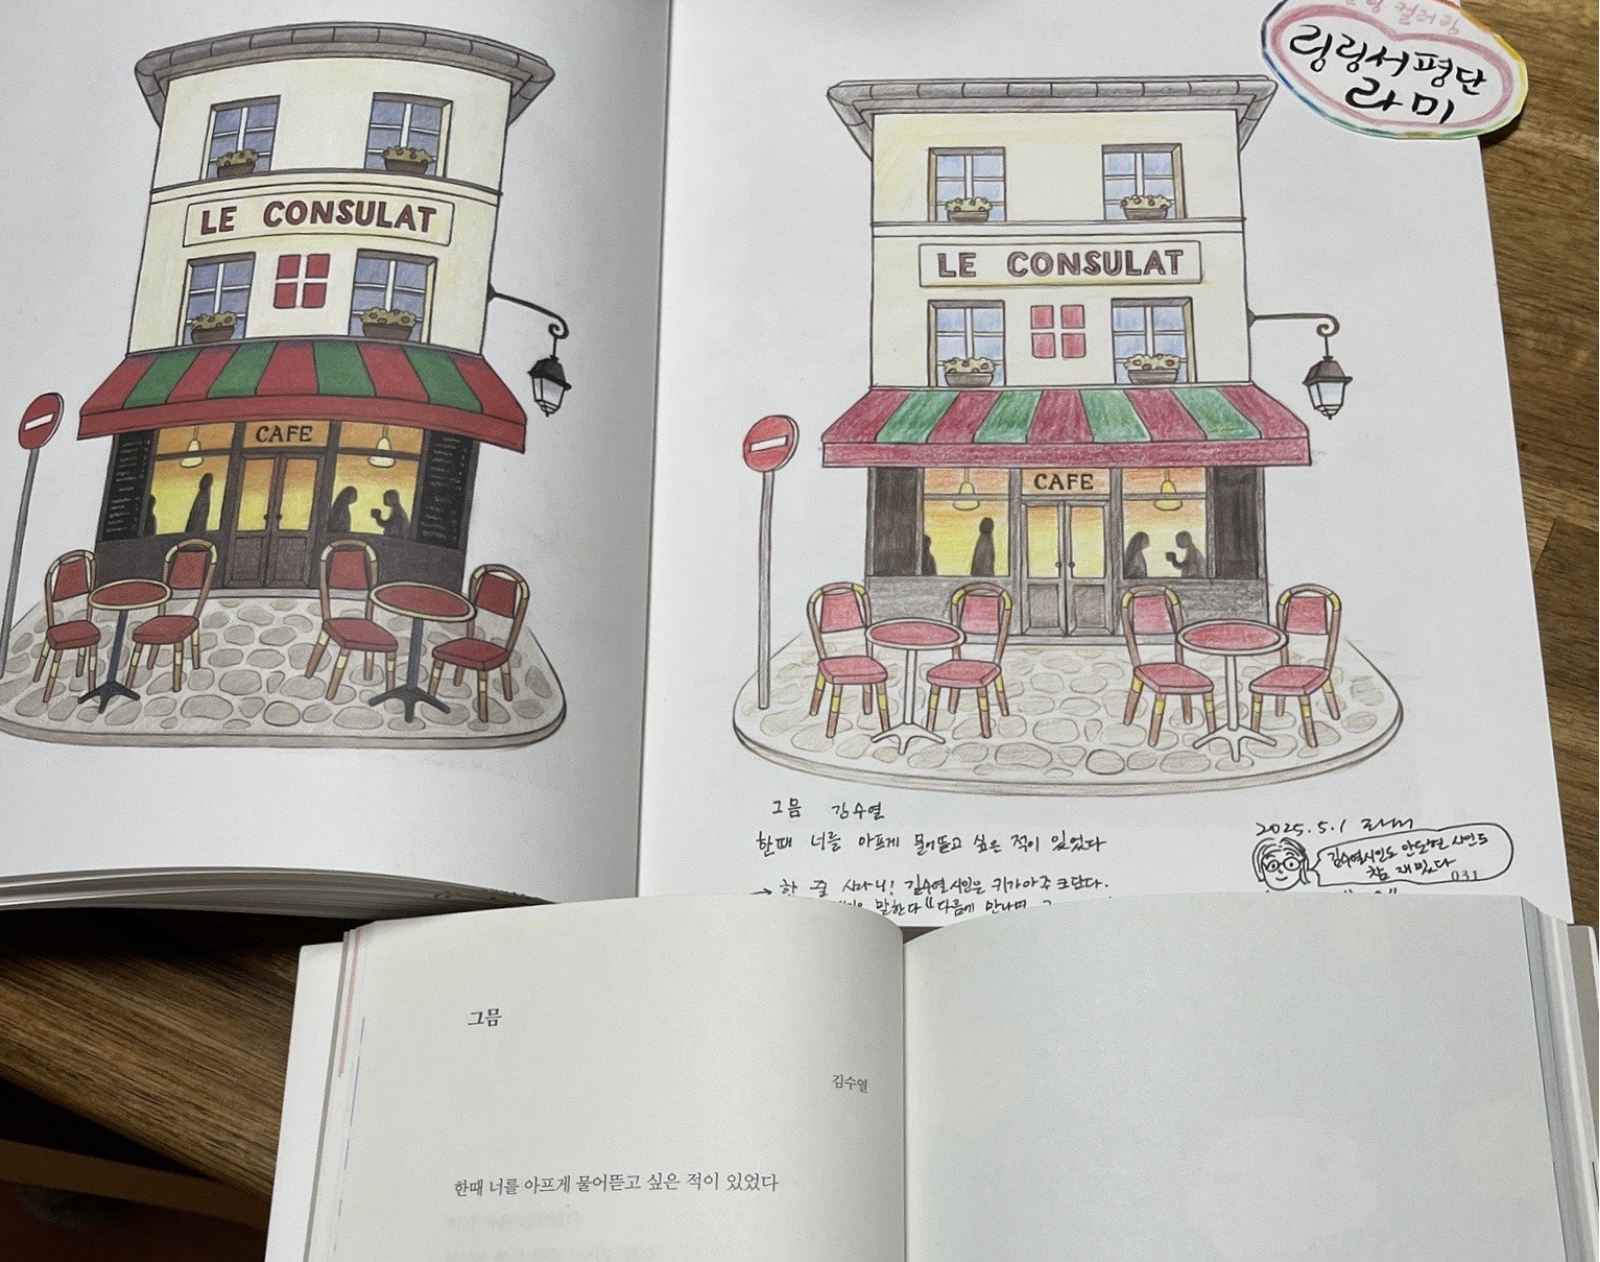 LE CONSULAT
CAFE
컬러링
링링서평단
라미
LE CONSULAT
CAFE
그믐 김수열
한때 너를 아프게 물어뜯고 싶은 적이 있었다
→ 한 줄 시라니! 김수열시인은 키가아주크단다.
말한다 "다음에 만나면
2025.5.1 라미
김수열시인도 안도현 시인도
참 재밌다
031
그믐
김수열
한때 너를 아프게 물어뜯고 싶은 적이 있었다